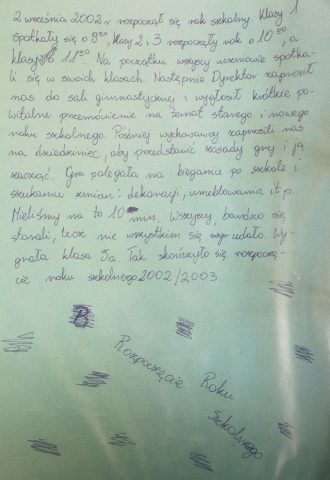 2 września 2002 r rozpoczął się rok szkolny. Klasy 1
spotkały się o 9⁰⁰, klasy 2 i 3 rozpoczęły rok o 10⁰⁰, a
klasy 11⁰⁰. Na początku wszyscy uczniowie spotka-
li się w swoich klasach. Następnie Dyrektor zaprosił
nas do sali gimnastycznej i wygłosił krótkie po-
witalne przemówienie na temat starego i nowego
roku szkolnego. Później wychowawcy zaprosili nas
na dziedziniec, aby przedstawić zasady gry i ją
zacząć. Gra polegała na bieganiu po szkole i
szukaniu zmian: dekoracji, umeblowania itp.
Mieliśmy na to 10 min. Wszyscy bardzo się
starali, lecz nie wszystkim się udało. Wy-
grała klasa Ia. Tak skończyło się rozpoczę-
cie roku szkolnego 2002/2003.
B
Rozpoczęcie Roku
Szkolnego